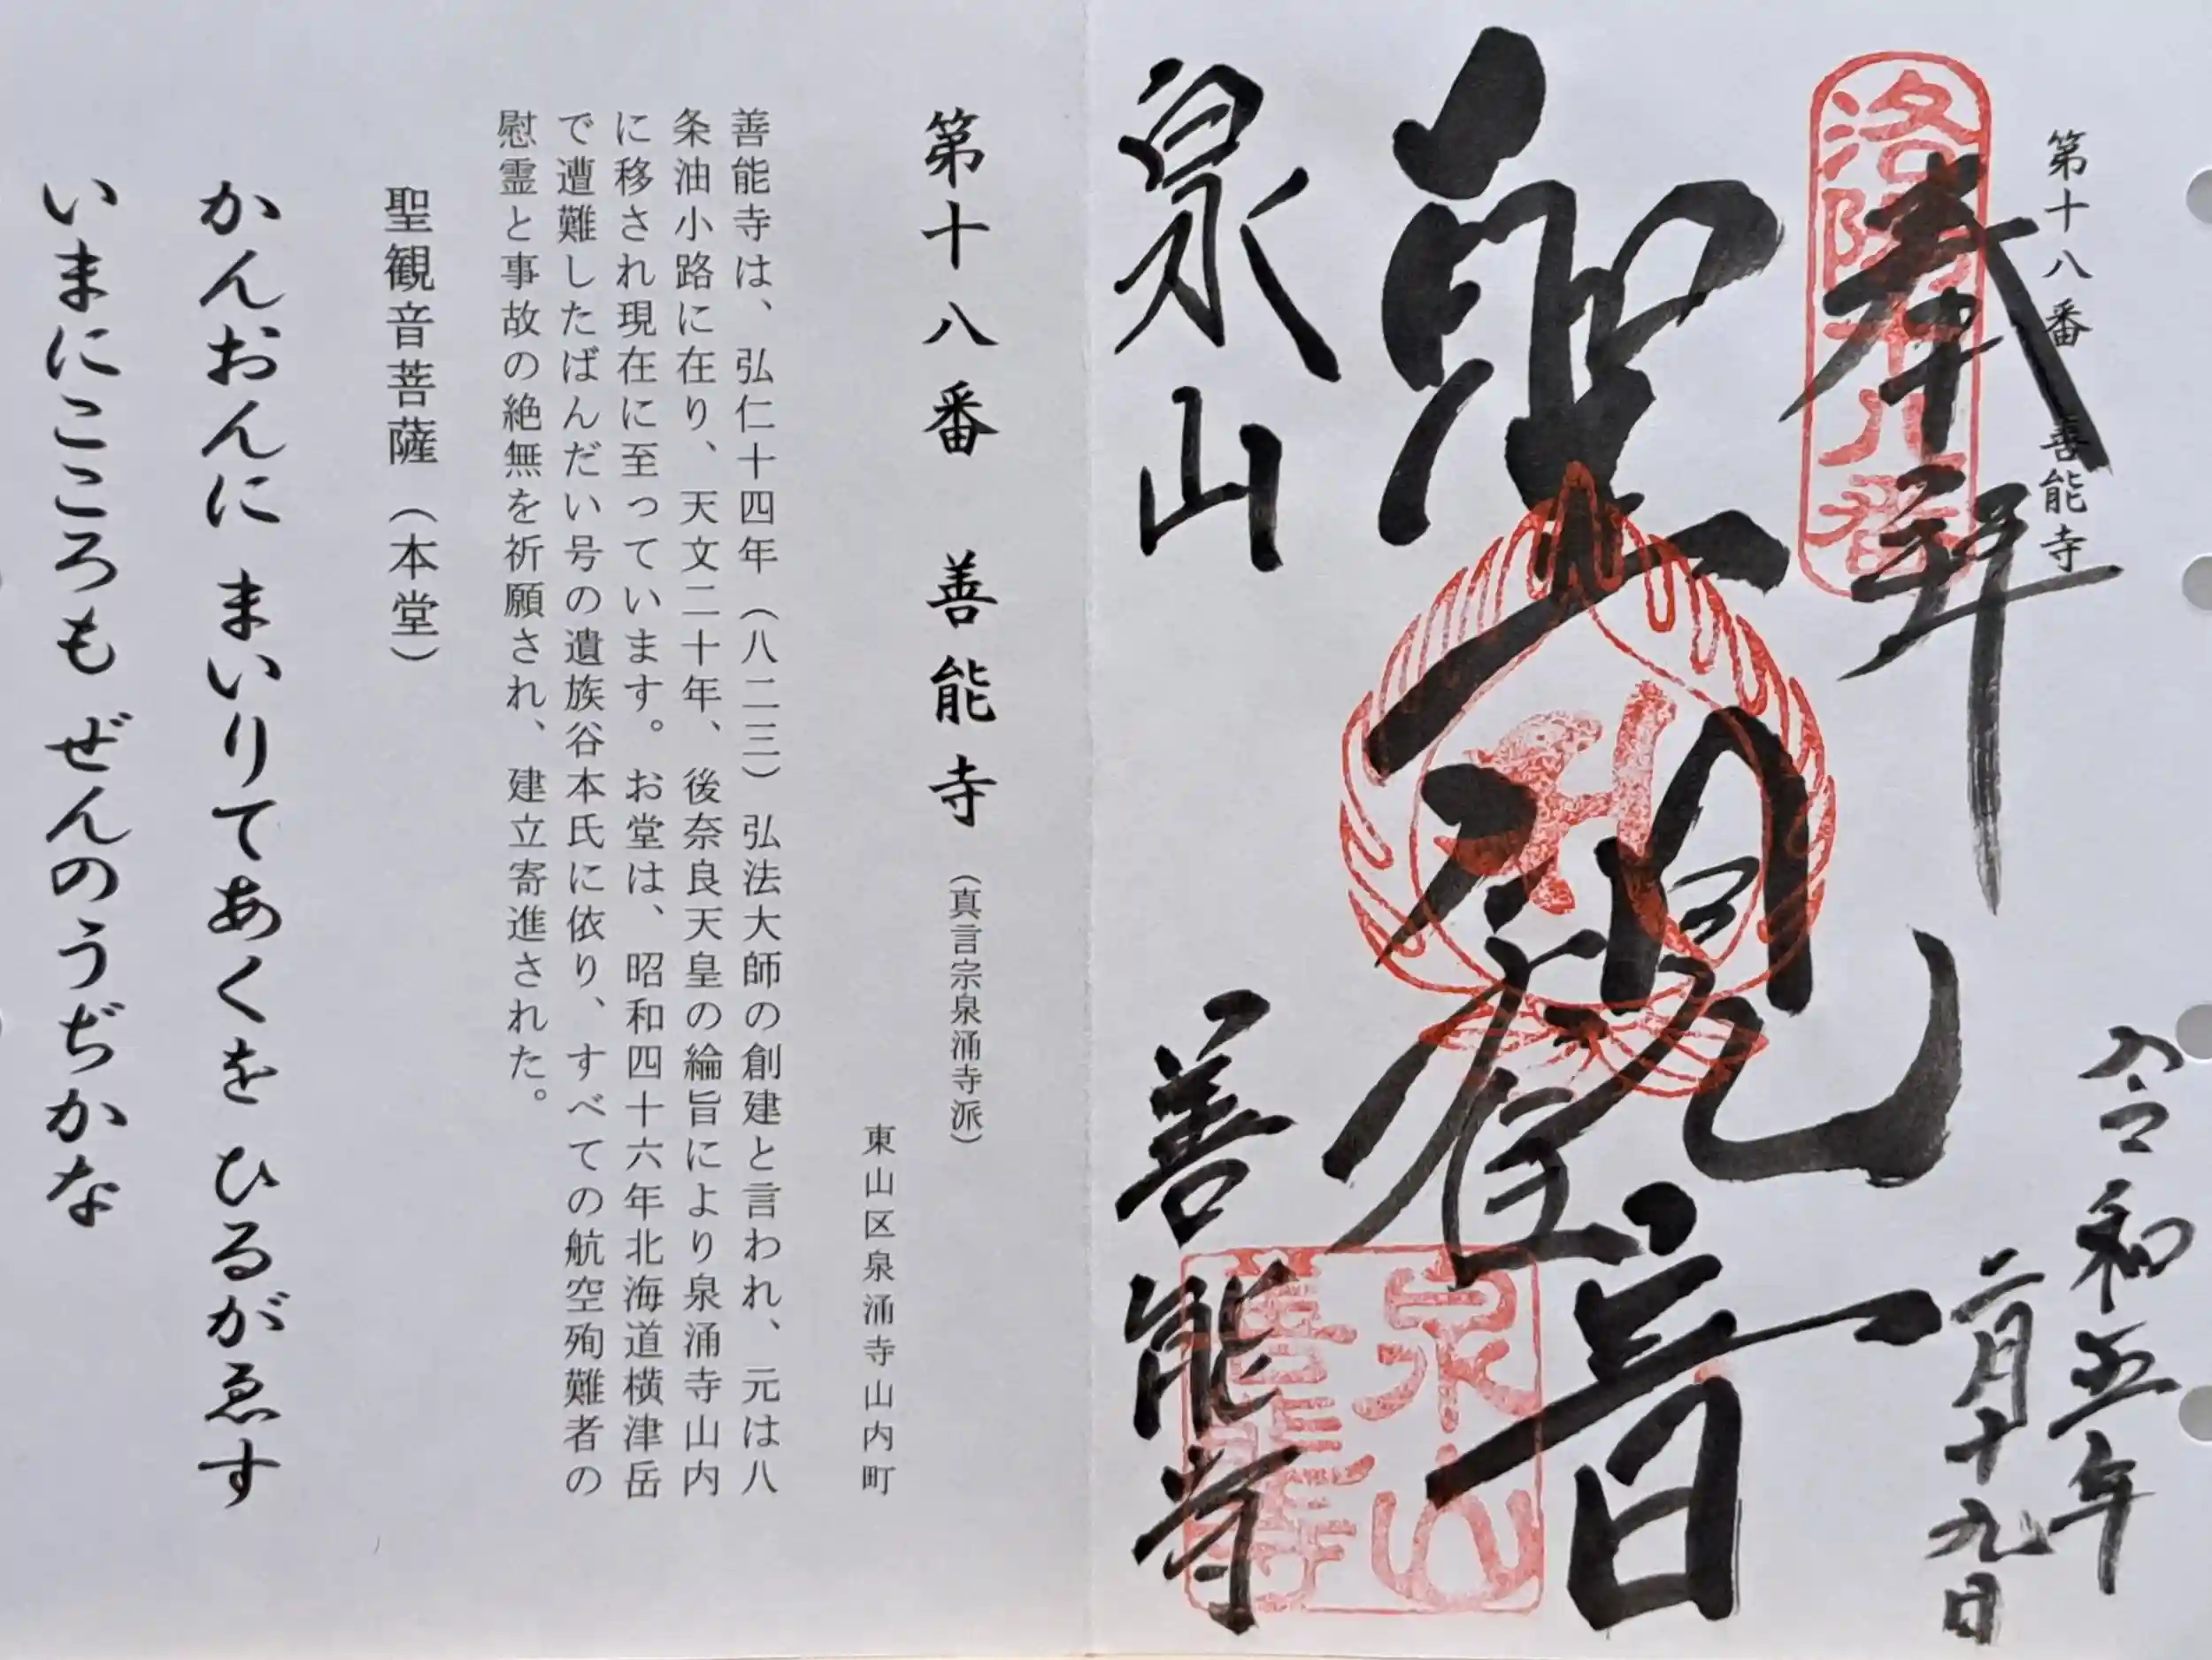 第十八番 善能寺
奉拝
洛陽十八番
令和五年
二月十九日
聖観世音
泉山
善能寺
泉山
善能寺
第十八番 善能寺(真言宗泉涌寺派)
東山区泉涌寺山内町
善能寺は、弘仁十四年(八二三)弘法大師の創建と言われ、元は八
条油小路に在り、天文二十年、後奈良天皇の綸旨により泉涌寺山内
に移され現在に至っています。お堂は、昭和四十六年北海道横津岳
で遭難したばんだい号の遺族谷本氏に依り、すべての航空殉難者の
慰霊と事故の絶無を祈願され、建立寄進された。
聖観音菩薩(本堂)
かんおんに まいりてあくを ひるがゑす
いまにこころも ぜんのうぢかな